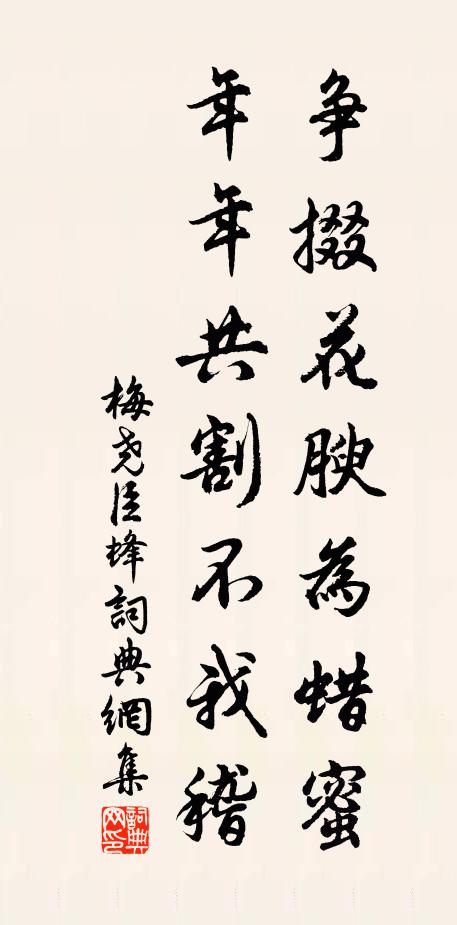 争掇花腴為蜡蜜
年年共割不我稽
梅尧臣蜂詞典網集
詞典
网印